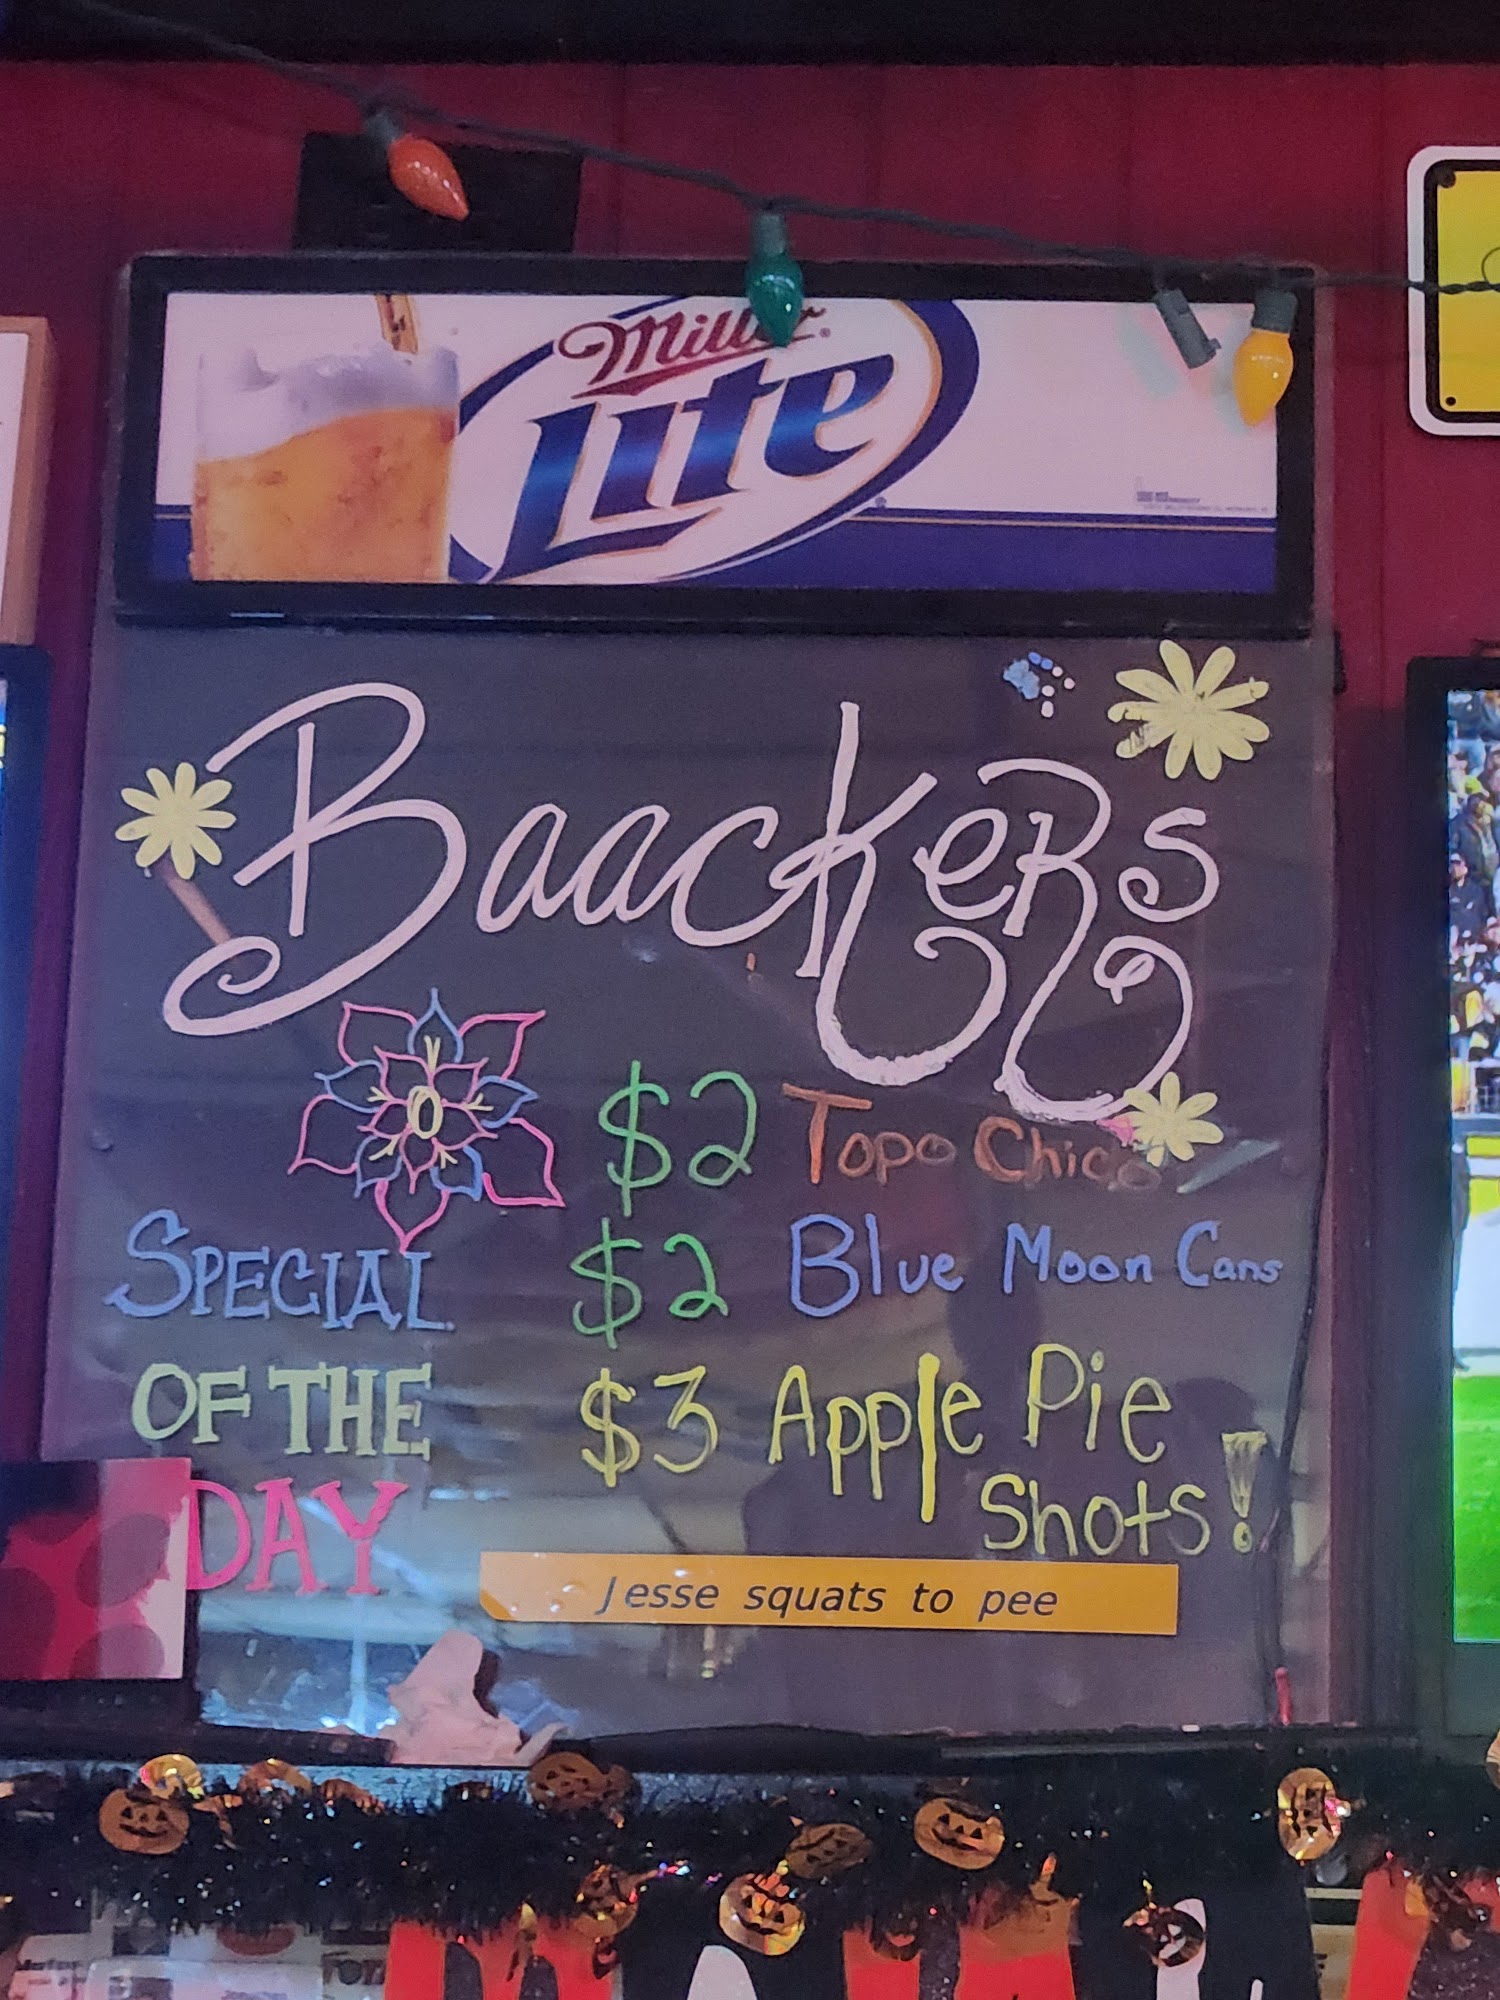 Miller
Lite
Baackers
$2 Topo Chico
$2 Blue Moon Cans
$3 Apple Pie
Shots!
SPECIAL
OF THE
DAY
Jesse squats to pee